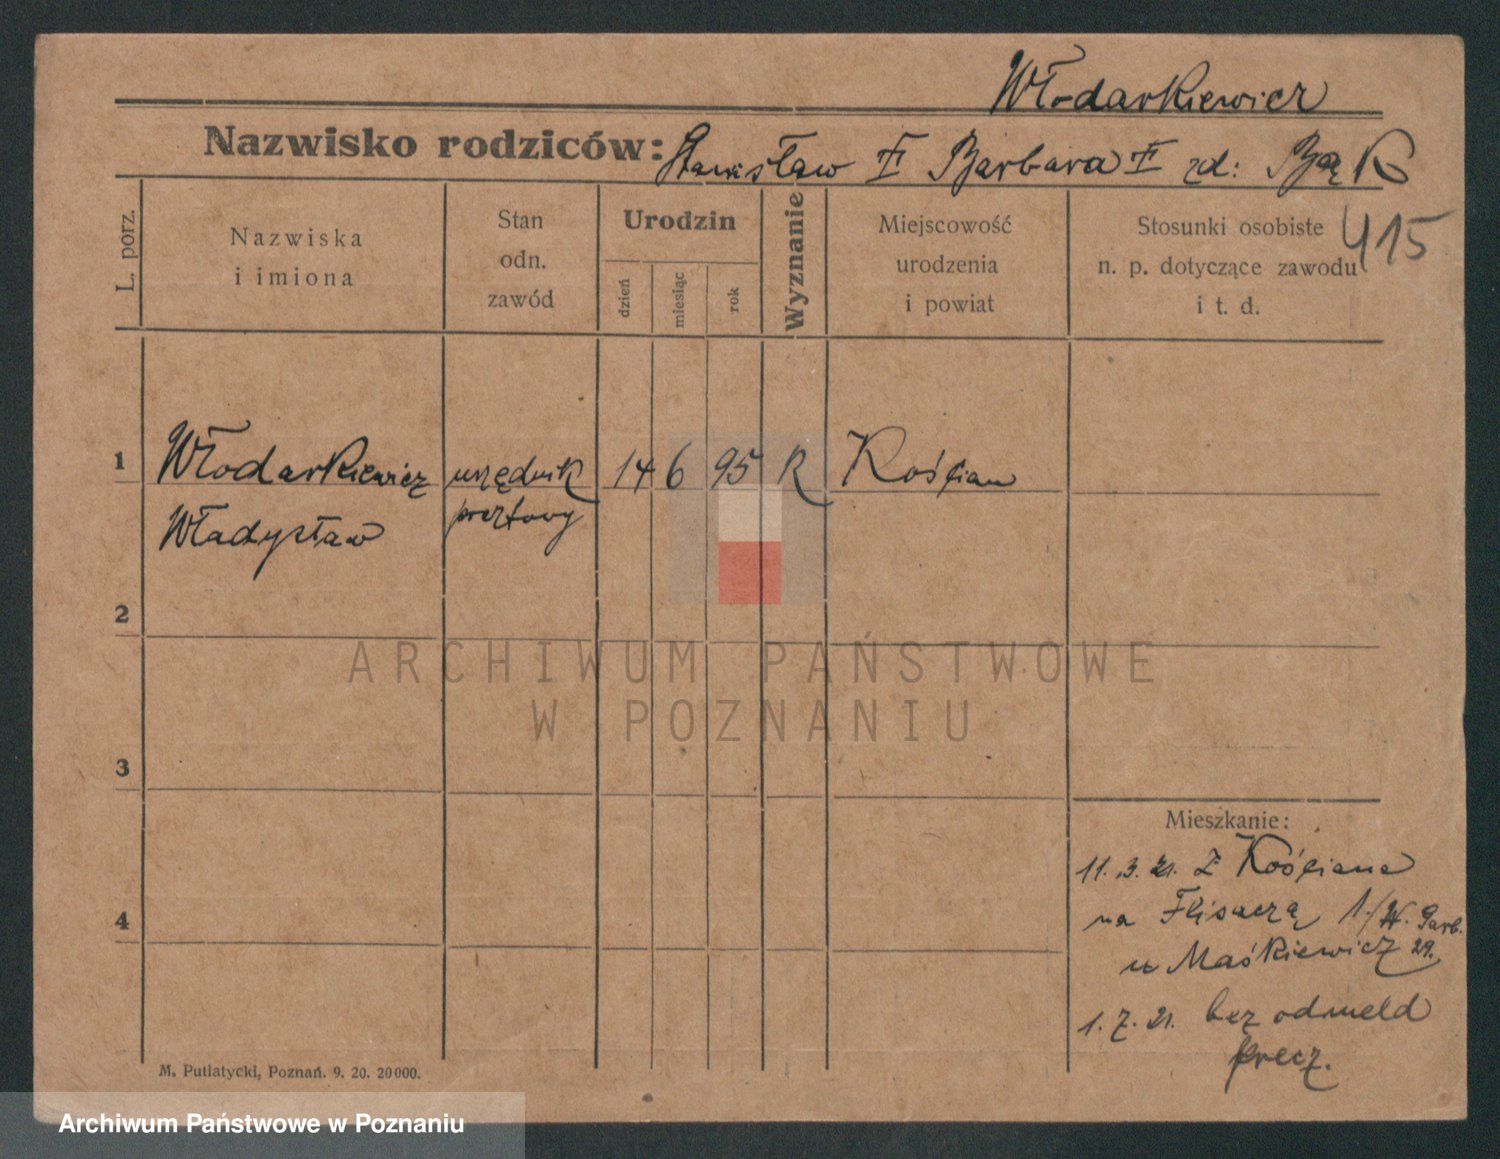 Włodarkiewicz
Nazwisko rodziców: Stanisław Barbara zd: Bąk
L. porz.
Nazwiska
i imiona
Stan
odn.
zawód
Urodzin
dzień
miesiąc
rok
Wyznanie
Miejscowość
urodzenia
i powiat
Stosunki osobiste
n. p. dotyczące zawodu
i t. d.
415
1 Włodarkiewicz urzędnik 14 6 95 R Kościan
Władysław pocztowy
2
ARCHIWUM PAŃSTWOWE
W POZNANIU
3
Mieszkanie:
11. 3. 21. Z Kościana
4
na Flisaczą 1./W. Garb.
u Maśkiewicz 29.
1. 7. 21. bez odmeld
precz.
M. Putiatycki, Poznań. 9. 20. 20000.
Archiwum Państwowe w Poznaniu